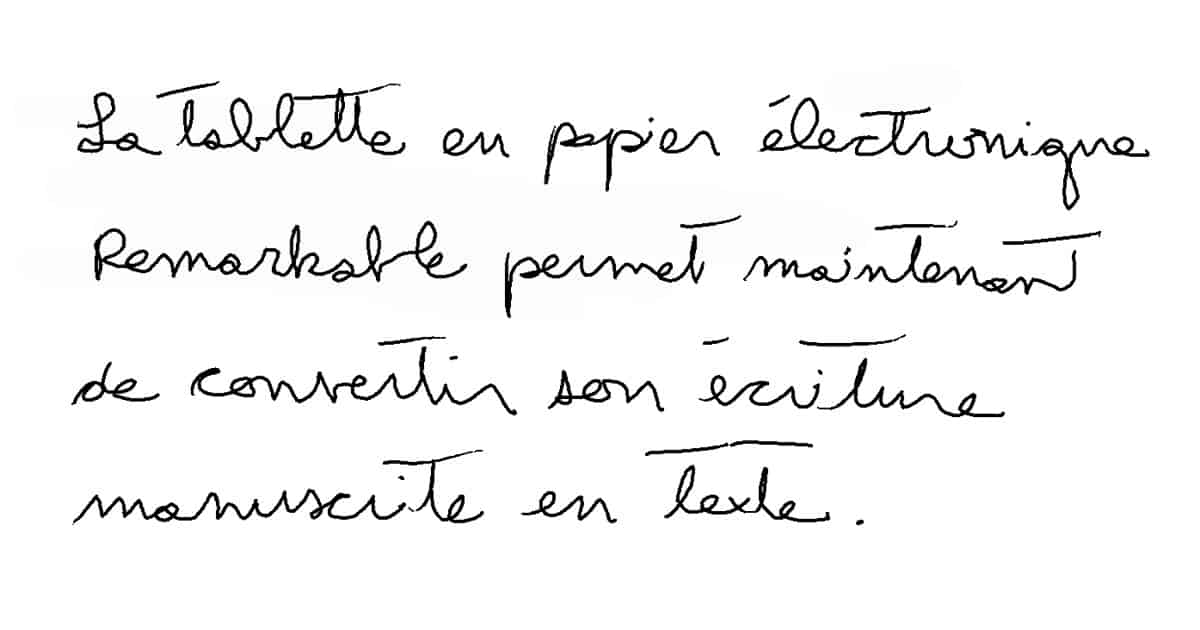 La tablette en papier électronique
Remarkable permet maintenant
de convertir son écriture
manuscrite en texte.